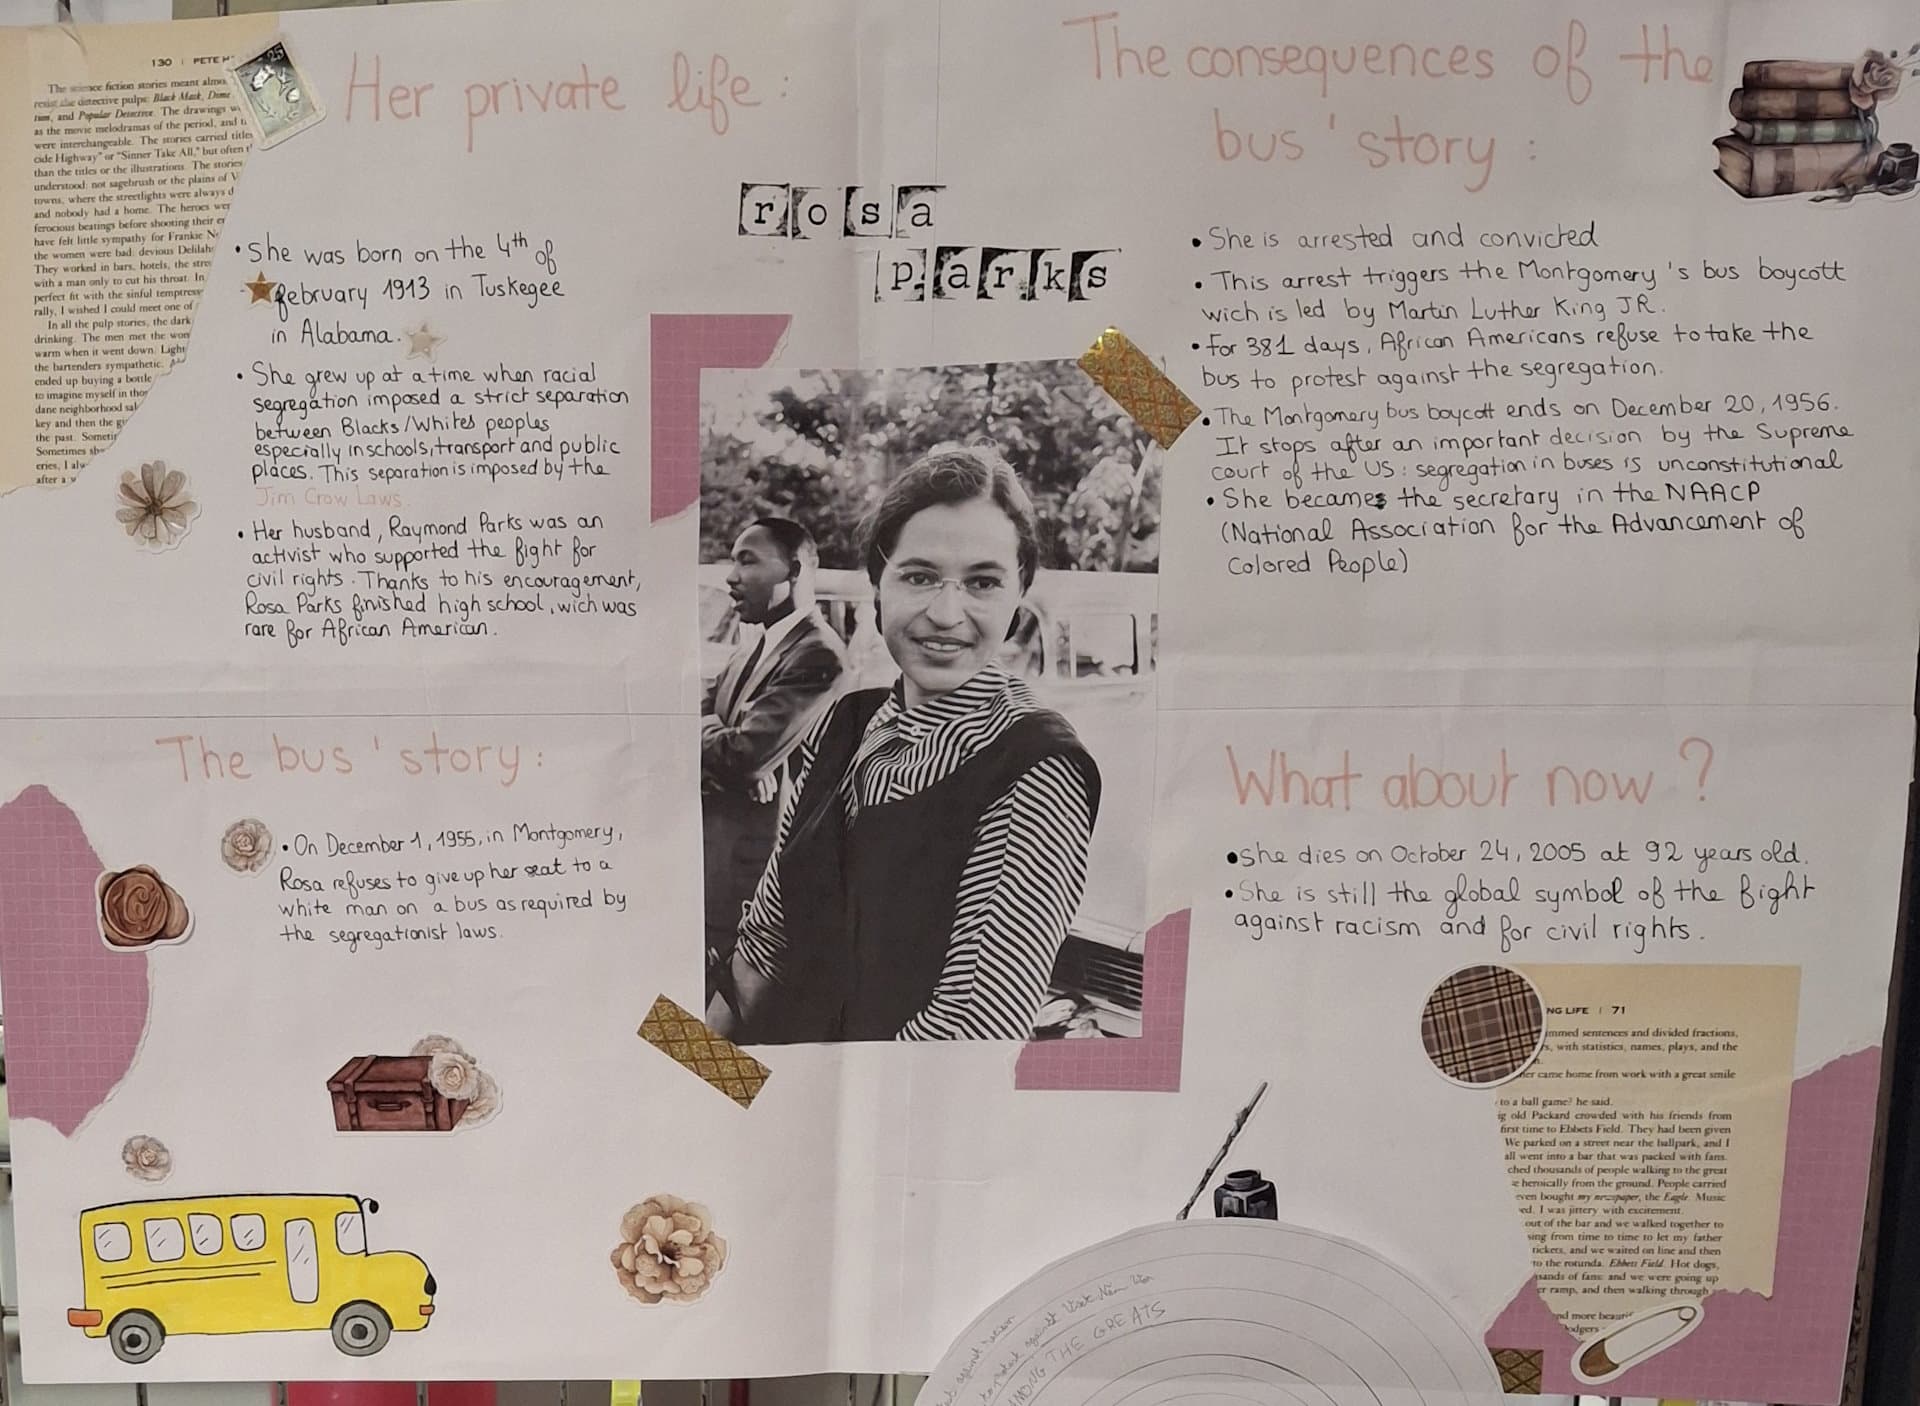 130 | PETE H
The science fiction stories meant almo
resist the detective pulps: Black Mask, Dime
tum, and Popular Detective. The drawings w
as the movie melodramas of the period, and t
were interchangeable. The stories carried titles
cide Highway" or "Sinner Take All," but often t
than the titles or the illustrations. The stories
understood: not sagebrush or the plains of
towns, where the streetlights were always d
and nobody had a home. The heroes wer
ferocious beatings before shooting their e
have felt little sympathy for Frankie N
the women were bad: devious Delilah
They worked in bars, hotels, the stre
with a man only to cut his throat. In
perfect fit with the sinful temptress
rally, I wished I could meet one of
In all the pulp stories, the dark
drinking. The men met the wom
warm when it went down. Light
the bartenders sympathetic.
ended up buying a bottle
to imagine myself in thos
dane neighborhood sal
key and then the g
the past. Someti
Sometimes sh
eries, I alw
after a w
Her private life :
• She was born on the 4th of
february 1913 in Tuskegee
in Alabama.
• She grew up at a time when racial
segregation imposed a strict separation
between Blacks/Whites peoples
especially in schools, transport and public
places. This separation is imposed by the
Jim Crow Laws.
• Her husband, Raymond Parks was an
activist who supported the fight for
civil rights. Thanks to his encouragement,
Rosa Parks finished high school, wich was
rare for African American.
rosa
parks
The consequences of the
bus ' story :
• She is arrested and convicted
• This arrest triggers the Montgomery 's bus boycott
wich is led by Martin Luther King JR.
• For 381 days, African Americans refuse to take the
bus to protest against the segregation.
• The Montgomery bus boycott ends on December 20, 1956.
It stops after an important decision by the Supreme
court of the US : segregation in buses is unconstitutional
• She becames the secretary in the NAACP
(National Association for the Advancement of
Colored People)
The bus ' story :
• On December 1, 1955, in Montgomery,
Rosa refuses to give up her seat to a
white man on a bus as required by
the segregationist laws.
What about now ?
• She dies on October 24, 2005 at 92 years old.
• She is still the global symbol of the fight
against racism and for civil rights.
NG LIFE | 71
mmed sentences and divided fractions,
s, with statistics, names, plays, and the
n.
her came home from work with a great smile
to a ball game? he said.
ig old Packard crowded with his friends from
first time to Ebbets Field. They had been given
We parked on a street near the ballpark, and I
all went into a bar that was packed with fans.
ched thousands of people walking to the great
e heroically from the ground. People carried
even bought my newspaper, the Eagle. Music
ed. I was jittery with excitement.
out of the bar and we walked together to
sing from time to time to let my father
tickets, and we waited on line and then
to the rotunda. Ebbets Field. Hot dogs,
sands of fans: and we were going up
er ramp, and then walking through
nd more beauti
Dodgers
against
AMONG THE GREATS